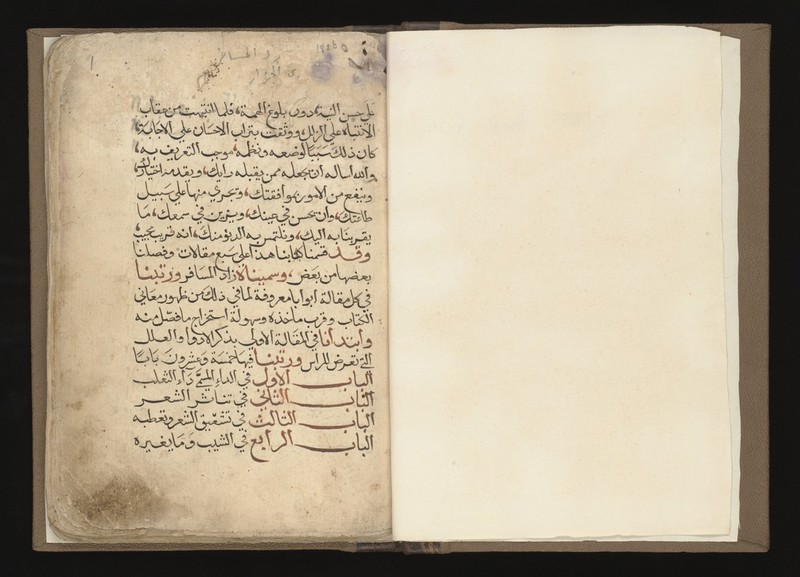 على حسن النية، دون بلوغ الهمة، فلما انتبهت من عقاب
الانتباه على الزلل، ووثقت بتراب الاحسان على الاجابة،
كان ذلك سببا لوضعه ونظمه، موجب التعريف به،
والله اساله ان يجعله ممن يقبله رايك، ويقدمه اختيارك،
وينفع من الامور بموافقتك، وتجري منها على سبيل
طاعتك، وان يحسن في عينك، ويزين في سمعك، ما
يقربنا به اليك، ونلتمس به الدنو منك، انه قريب مجيب
وقد قسمنا كتابنا هذا على سبع مقالات وفصلنا
بعضها من بعض، وسميناه زاد المسافر ورتبنا
في كل مقالة ابوابا معروفة لما في ذلك من ظهور معاني
الكتاب وقرب ماخذه وسهولة استخراج ما فصل منه
وابتدأنا في المقالة الاولى بذكر الادوا والعلل
التي تعرض للراس ورتبنا فيها خمسة وعشرون بابا
الباب الاول في الداء المسمى داء الثعلب
الباب الثاني في تناثر الشعر
الباب الثالث في تشقيق الشعر وتعطبه
الباب الرابع في الشيب وما يغيره